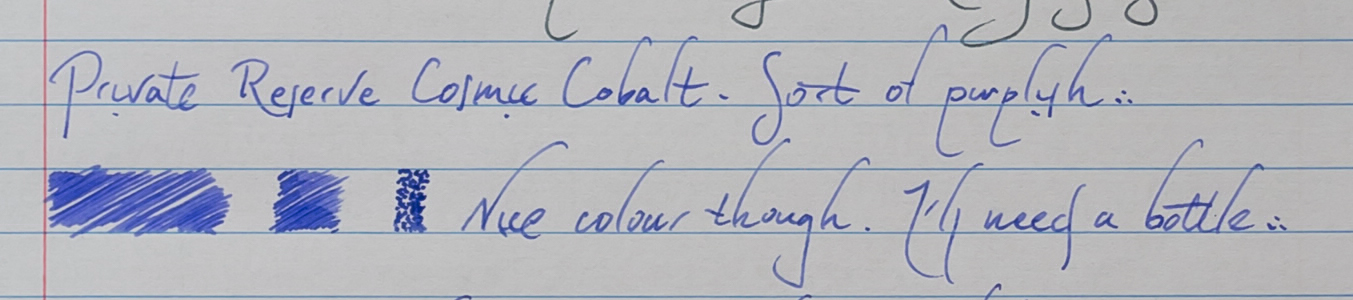 Private Reserve Cosmic Cobalt. Sort of purplish...
Nice colour though. I'll need a bottle...